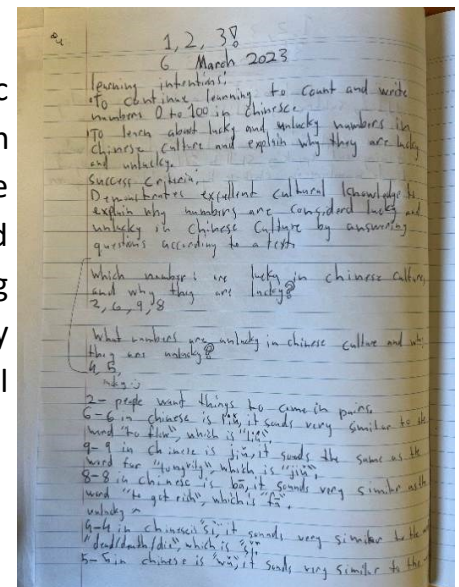 1, 2, 3!
6 March 2023
learning intentions:
• To continue learning to count and write
numbers 0 to 100 in Chinese.
• To learn about lucky and unlucky numbers in
Chinese culture and explain why they are lucky
and unlucky.
Success Criteria:
Demonstrates excellent cultural knowledge to
explain why numbers are considered lucky and
unlucky in Chinese Culture by answering
questions according to a text.
Which numbers are lucky in chinese culture,
and why they are lucky?
2, 6, 9, 8
What numbers are unlucky in chinese culture and why
they are unlucky?
4, 5,
2 - people want things to come in pairs.
6 - 6 in chinese is it sounds very similar to the
word "to flow", which is
9 - 9 in chinese is it sounds the same as the
word for which is
8 - 8 in chinese is bā, it sounds very similar as the
word "to get rich", which is "fā".
unlucky
4 - 4 in chinese is "sì", it sounds very similar to the
"dead/death/die", which is
5 - 5 in chinese is it sounds very similar to the